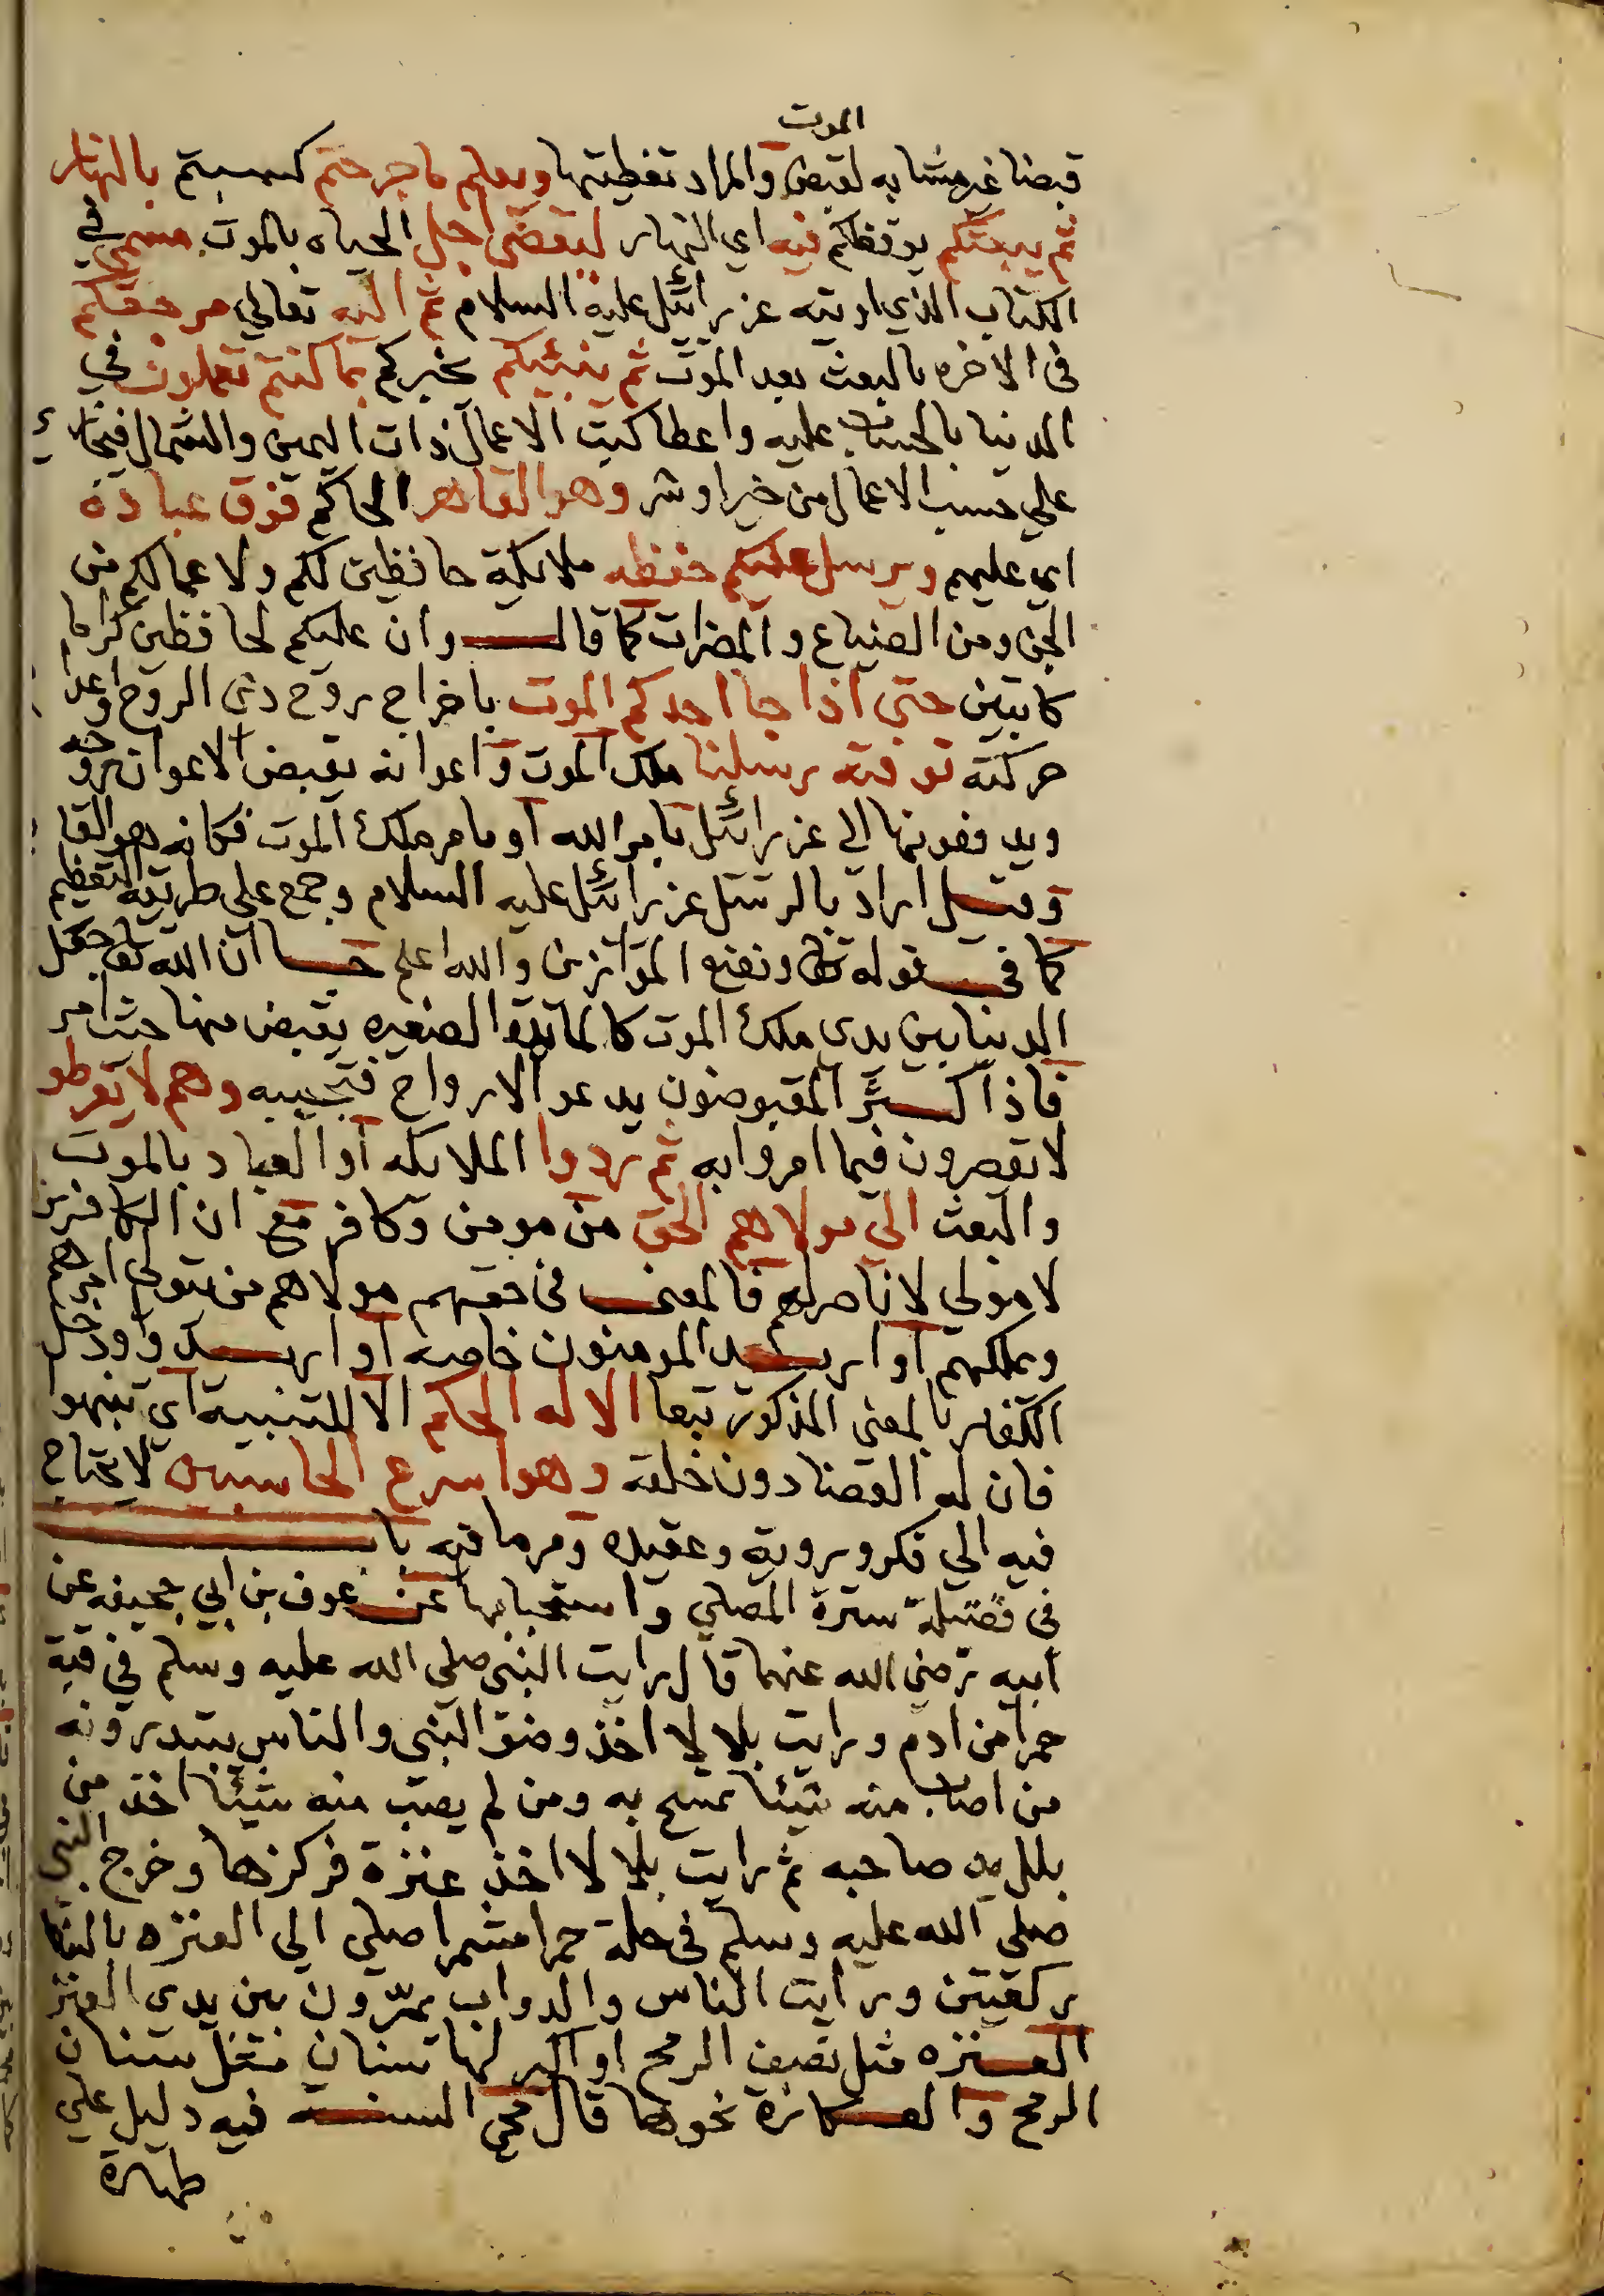 الموت
قبضا غير مشابه لقبض والمراد تغطيتها ويعلم ما جرحتم كسبتم بالنهار
ثم يبعثكم يوقظكم فيه اي النهار ليقضى اجل الحياه بالموت مسمى في
الكتاب الذي اوتيه عزرائيل عليه السلام ثم اليه تعالي مرجعكم
في الاخره بالبعث بعد الموت ثم ينبئكم يخبركم بما كنتم تعملون في
الدنيا بالحساب عليه واعطا كتب الاعمال ذات اليمين والشمال
علي حسب الاعمال من خير او شر وهو القاهر الحاكم فوق عباده
اي عليهم ويرسل عليكم حفظه ملائكة حافظين لكم ولاعمالكم من
الجن ومن الضياع والمضرات كما قال وان عليكم لحافظين كراما
كاتبين حتى اذا جا احدكم الموت باخراج روح ذي الروح
حركته توفته رسلنا ملك الموت واعوانه يقبض الاعوان روحه
ويدفعونها الي عزرائيل بامر الله او بامر ملك الموت فكانه هو القا
وقيل اراد بالرسل عزرائيل عليه السلام وجمع على طريقة التعظيم
كما في قوله ونضع الموازين والله اعلم جا ان الله جعل
الدنيا بين يدي ملك الموت كالمائدة الصغيره يقبض منها حيث امر
فاذا كثر المقبوضون يدعو الارواح فتجيبه وهم لا يفرطو
لا يقصرون فيما امروا به ثم ردوا الملائكه او العباد بالموت
والبعث الي مولاهم الحق من مومن وكافر مع ان الكافرين
لا مولي لا ناصر لهم فالمعنى في حقهم مولاهم من يتولى امرهم
ويملكهم او اريد المومنون خاصه او اريد وادخل
الكفار بالمعنى المذكور تبعا الا له الحكم الا للتنبيه اي تنبهوا
فان له القضا دون خلقه وهو اسرع الحاسبين لا يحتاج
فيه الي فكر وروية وعقيده ومر ما فيه باب
في فضيلة سترة المصلي واستحبابها عن عوف بن ابي جحيفه عن
ابيه رضي الله عنهما قال رايت النبي صلي الله عليه وسلم في قبة
حمرا من ادم ورايت بلالا اخذ وضو النبي والناس يبتدرونه
من اصاب منه شيئا تمسح به ومن لم يصب منه شيئا اخذ من
بلل يد صاحبه ثم رايت بلالا اخذ عنزة فركزها وخرج النبي
صلي الله عليه وسلم في حلة حمرا مشمرا صلي الي العنزه بالنا
ركعتين ورايت الناس والدواب يمرون بين يدي العنز
العنزه مثل نصف الرمح او اكبر لها سنان مثل سنان
الرمح والعكازة نحوها قال محي السنه فيه دليل علي
طهارة